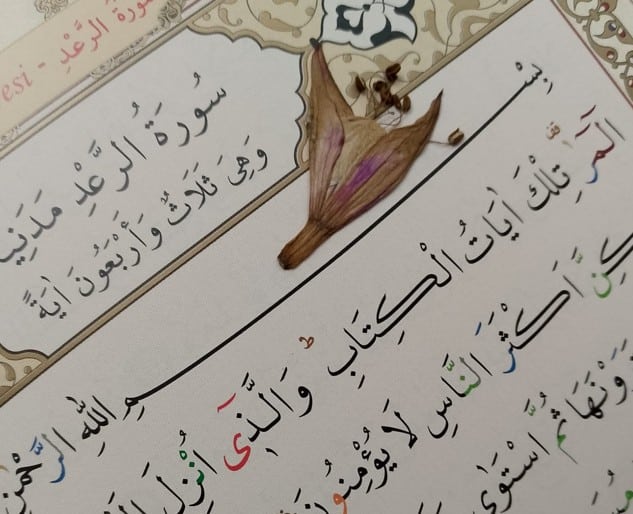 esi - سُورَةُ الرَّعْدِ
سُورَةُ الرَّعْدِ مَدَنِيـ
وَهِيَ ثَلَاثٌ وَأَرْبَعُونَ اٰيَةً
بِسْمِ اللّٰهِ الرَّحْمٰنِ
الٓمٓرٰ قف تِلْكَ اٰيَاتُ الْكِتَابِ ط وَالَّذ۪ٓي اُنْزِلَ
كِنَّ اَكْثَرَ النَّاسِ لَا يُؤْمِنُونَ
رَوْنَهَا ثُمَّ اسْتَوٰى